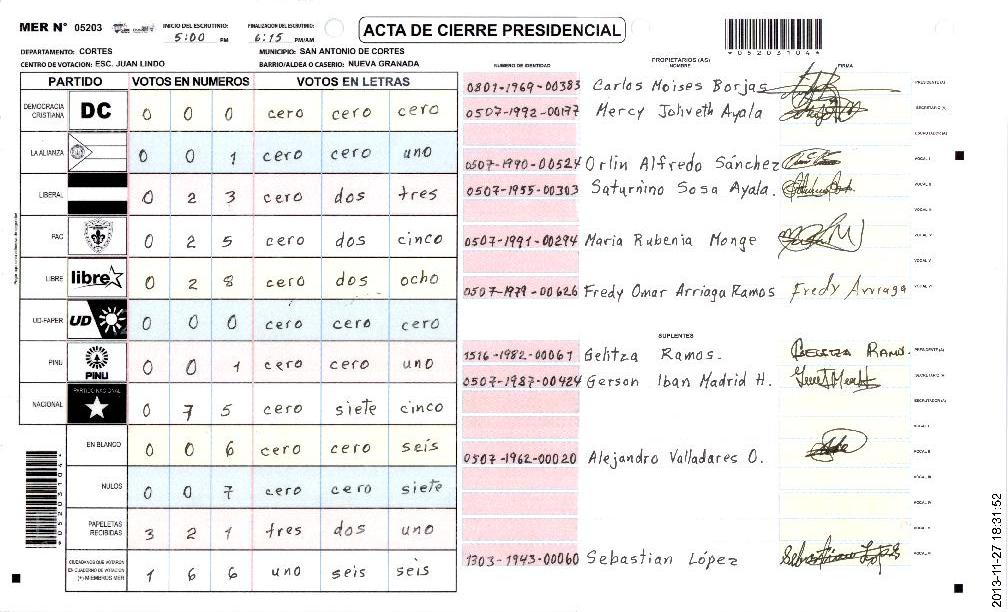 MER Nº 05203
INICIO DEL ESCRUTINIO: 5:00 PM
FINALIZACION DEL ESCRUTINIO: 6:15 PM/AM
ACTA DE CIERRE PRESIDENCIAL
*05203104*
DEPARTAMENTO: CORTES
MUNICIPIO: SAN ANTONIO DE CORTES
CENTRO DE VOTACION: ESC. JUAN LINDO
BARRIO/ALDEA O CASERIO: NUEVA GRANADA
PARTIDO VOTOS EN NUMEROS VOTOS EN LETRAS
DEMOCRACIA CRISTIANA DC 0 0 0 cero cero cero
LA ALIANZA 0 0 1 cero cero uno
LIBERAL 0 2 3 cero dos tres
PAC 0 2 5 cero dos cinco
LIBRE libre 0 2 8 cero dos ocho
UD-FAPER UD 0 0 0 cero cero cero
PINU PINU 0 0 1 cero cero uno
NACIONAL PARTIDO NACIONAL 0 7 5 cero siete cinco
EN BLANCO 0 0 6 cero cero seis
NULOS 0 0 7 cero cero siete
PAPELETAS RECIBIDAS 3 2 1 tres dos uno
CIUDADANOS QUE VOTARON EN CUADERNO DE VOTACION (+) MIEMBROS MER 1 6 6 uno seis seis
*05203104*
PROPIETARIOS (AS)
NUMERO DE IDENTIDAD NOMBRE FIRMA
0801-1969-00383 Carlos Moises Borjas PRESIDENTE(A)
0507-1992-00177 Mercy Johveth Ayala SECRETARIO (A)
ESCRUTADOR (A)
0507-1990-00524 Orlin Alfredo Sánchez VOCAL I
0507-1955-00303 Saturnino Sosa Ayala. VOCAL II
VOCAL III
0507-1991-00294 Maria Rubenia Monge VOCAL IV
VOCAL V
0507-1979-00626 Fredy Omar Arriaga Ramos Fredy Arriaga VOCAL VI
SUPLENTES
1516-1982-00061 Gelitza Ramos. GELITZA RAMOS. PRESIDENTE(A)
0507-1987-00424 Gerson Iban Madrid H. SECRETARIO (A)
ESCRUTADOR(A)
VOCAL I
0507-1962-00020 Alejandro Valladares O. VOCAL II
VOCAL III
VOCAL IV
VOCAL V
1303-1943-00060 Sebastian López VOCAL VI
2013-11-27 18:31:52